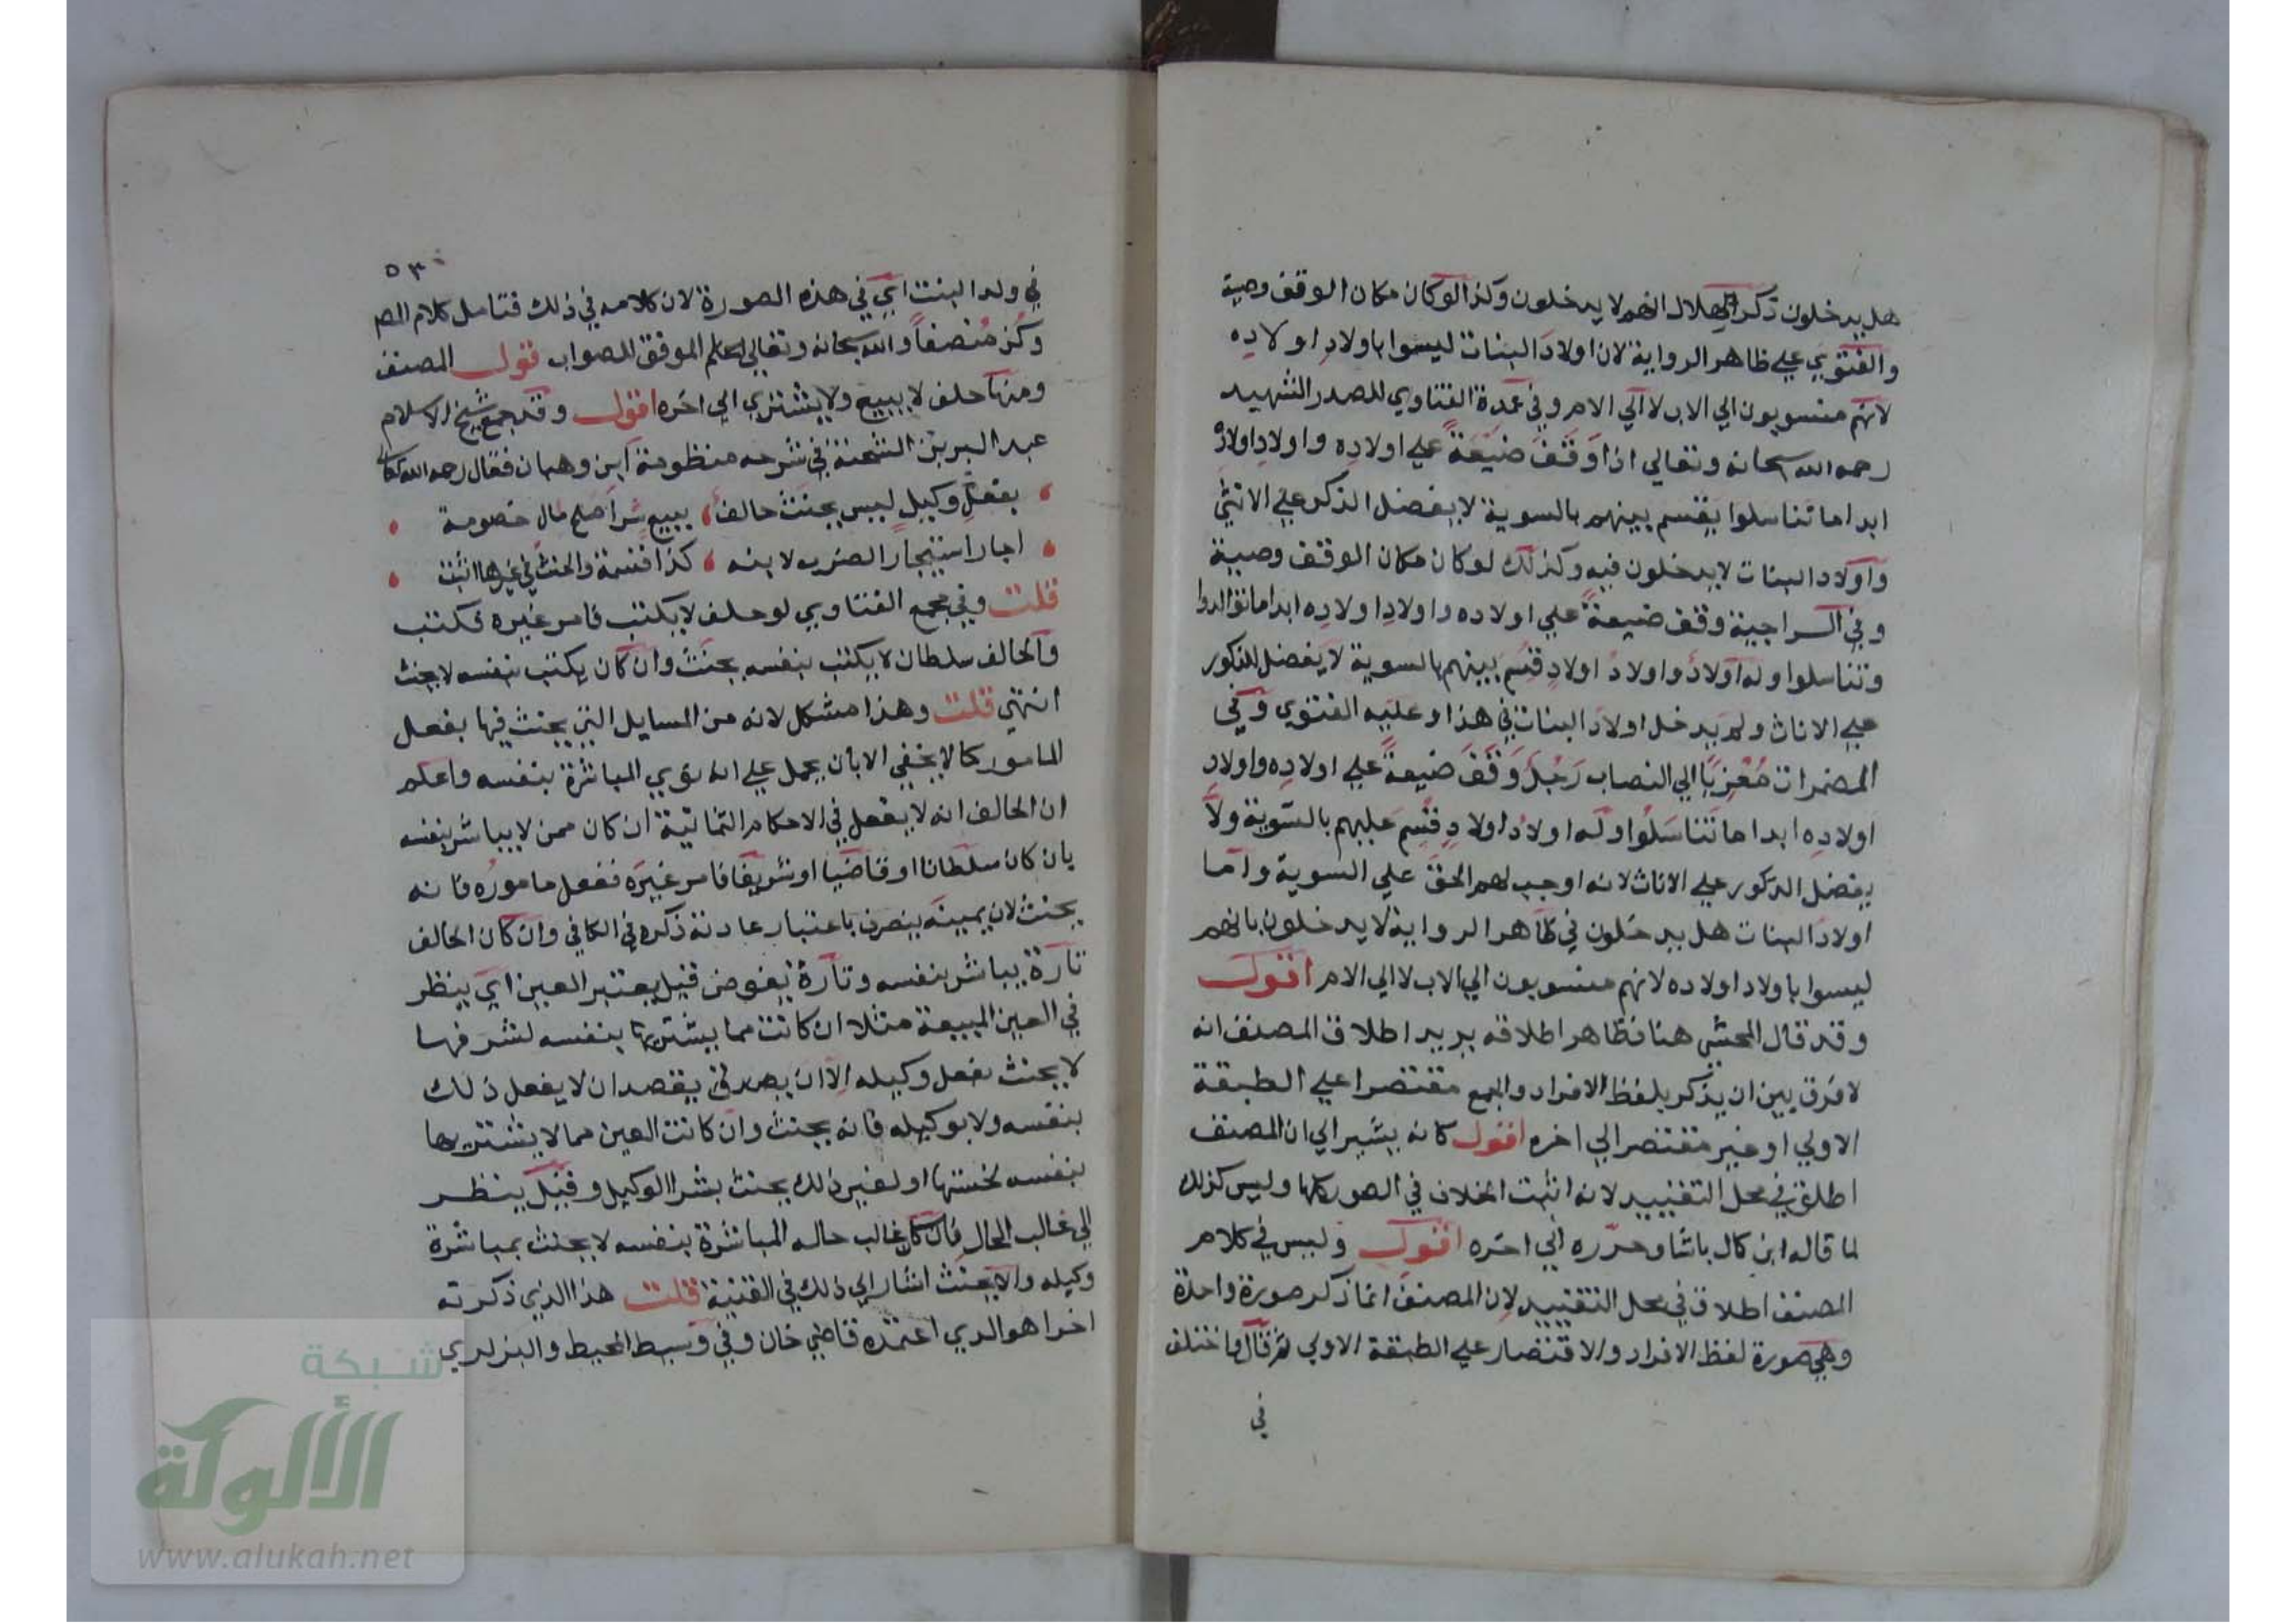 هل يدخلون ذكر هلال انهم لا يدخلون وكذا لو كان مكان الوقف وصية
والفتوي علي ظاهر الرواية لان اولاد البنات ليسوا باولاد اولاده
لانهم منسوبون الي الاب لا الي الام وفي عمدة الفتاوي للصدر الشهيد
رحمه الله سبحانه وتعالي اذا وقف ضيعة علي اولاده واولاد اولاده
ابدا ما تناسلوا يقسم بينهم بالسوية لا يفضل الذكر علي الانثي
واولاد البنات لا يدخلون فيه وكذلك لو كان مكان الوقف وصية
وفي السراجية وقف ضيعة علي اولاده واولاد اولاده ابدا ما توالدوا
وتناسلوا وله اولاد واولاد اولاد قسم بينهم بالسوية لا يفضل الذكور
علي الاناث ولم يدخل اولاد البنات في هذا وعليه الفتوي وفي
المضمرات معزيا الي النصاب رجل وقف ضيعة علي اولاده واولاد
اولاده ابدا ما تناسلوا وله اولاد اولاد قسم عليهم بالسوية ولا
يفضل الذكور علي الاناث لانه اوجب لهم الحق علي السوية واما
اولاد البنات هل يدخلون في ظاهر الرواية لا يدخلون بانهم
ليسوا باولاد اولاده لانهم منسوبون الي الاب لا الي الام اقول
وقد قال المحشي هنا فظاهر اطلاقه يريد اطلاق المصنف انه
لا فرق بين ان يذكر بلفظ الافراد والجمع مقتصرا علي الطبقة
الاولي او غير مقتصر الي اخره اقول كانه يشير الي ان المصنف
اطلق في محل التقييد لانه اثبت الخلاف في الصور كلها وليس كذلك
لما قاله ابن كمال باشا وحرره الي اخره اقول وليس في كلام
المصنف اطلاق في محل التقييد لان المصنف انما ذكر صورة واحدة
وهي صورة لفظ الافراد والاقتصار علي الطبقة الاولي ثم قال واختلف
في
٥٣
في ولد البنت اي في هذه الصورة لان كلامه في ذلك فتامل كلام المص
وكن منصفا والله سبحانه وتعالي اعلم الموفق للصواب قول المصنف
ومنها حلف لا يبيع ولا يشتري الي اخره اقول وقد جمع شيخ الاسلام
عبد البر بن الشحنة في شرحه منظومة ابن وهبان فقال رحمه الله تعالي
بفعل وكيل ليس يحنث حالف ببيع شرا صلح مال خصومة
اجارا استيجار الضرب لابنه كذا قسمة والحنث في غيرها اثبت
قلت وفي مجمع الفتاوي لو حلف لا يكتب فامر غيره فكتب
والحالف سلطان لا يكتب بنفسه يحنث وان كان يكتب بنفسه لا يحنث
انتهي قلت وهذا مشكل لانه من المسايل التي يحنث فيها بفعل
المامور كما لا يخفي الا بان يحمل علي انه نوي المباشرة بنفسه واعلم
ان الحالف انه لا يفعل في الاحكام الثمانية ان كان ممن لا يباشر بنفسه
بان كان سلطانا او قاضيا او شريفا فامر غيره ففعل ماموره فانه
يحنث لان يمينه ينصرف باعتبار عادته ذكره في الكافي وان كان الحالف
تارة يباشر بنفسه وتارة يفوض قيل يعتبر العين اي ينظر
في العين المبيعة مثلا ان كانت مما يشتريها بنفسه لشرفها
لا يحنث بفعل وكيله الا ان يقصد ان لا يفعل ذلك
بنفسه ولا بوكيله فانه يحنث وان كانت العين مما لا يشتريها
بنفسه لخستها او لغير ذلك يحنث بشرا الوكيل وقيل ينظر
الي غالب الحال فان كان غالب حاله المباشرة بنفسه لا يحنث بمباشرة
وكيله والا يحنث اشار الي ذلك في القنية قلت هذا الذي ذكرته
اخرا هو الذي اعتمده قاضي خان وفي وسيط المحيط والبزازي
شبكة
الألوكة
www.alukah.net